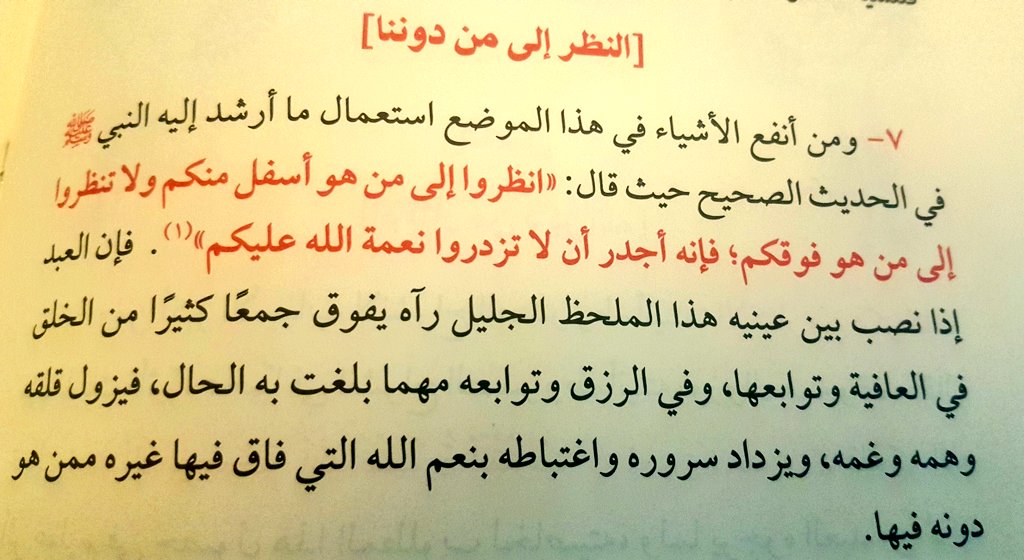 [النظر إلى من دوننا]
٧- ومن أنفع الأشياء في هذا الموضع استعمال ما أرشد إليه النبي ﷺ
في الحديث الصحيح حيث قال: «انظروا إلى من هو أسفل منكم ولا تنظروا
إلى من هو فوقكم؛ فإنه أجدر أن لا تزدروا نعمة الله عليكم»(١). فإن العبد
إذا نصب بين عينيه هذا الملحظ الجليل رآه يفوق جمعًا كثيرًا من الخلق
في العافية وتوابعها، وفي الرزق وتوابعه مهما بلغت به الحال، فيزول قلقه
وهمه وغمه، ويزداد سروره واغتباطه بنعم الله التي فاق فيها غيره ممن هو
دونه فيها.